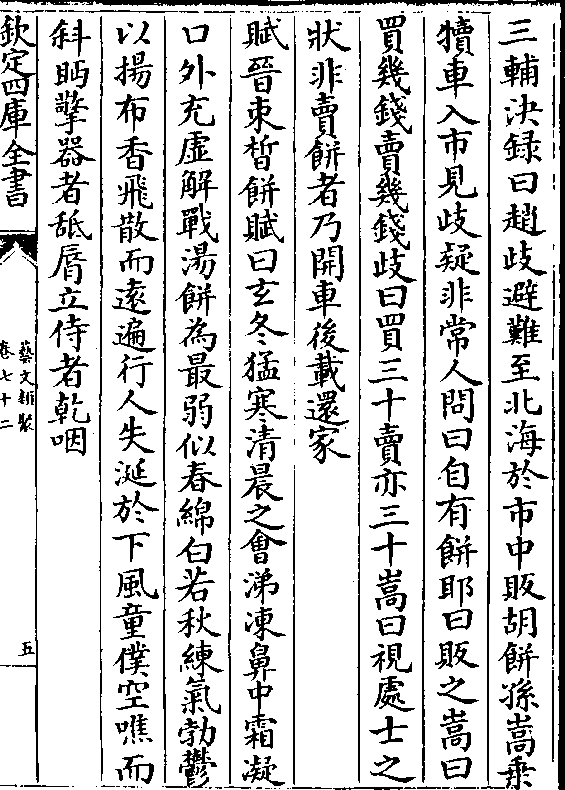 三輔決録曰趙歧避難至北海於市中販胡餅孫嵩乗
犢車入市見歧疑非常人問曰自有餅耶曰販之嵩曰
買幾錢賣幾錢歧曰買三十賣亦三十嵩曰視處士之
狀非賣餅者乃開車後載還家
賦晉束晳餅賦曰玄冬猛寒清晨之會涕凍鼻中霜凝
口外充虛解戰湯餅為最弱似春綿白若秋練氣勃鬱
以揚布香飛散而遠遍行人失涎於下風童僕空噍而
斜眄擎器者舐脣立侍者乾咽
欽定四庫全書
藝文類聚
卷七十二
五